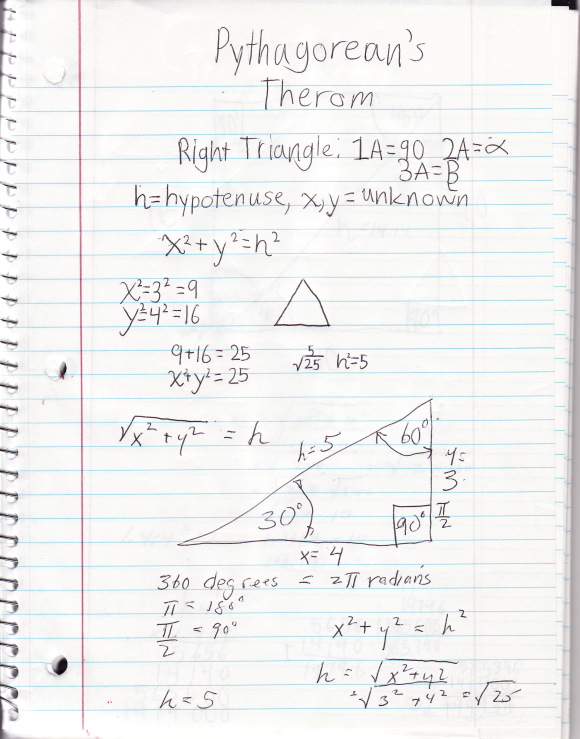 Pythagorean's
Therom
Right Triangle: 1A=90 2A=α
3A=β
h=hypotenuse, x,y=unknown
x²+y²=h²
x²=3²=9
y²=4²=16
9+16=25 5 h²=5
√25
x²+y²=25
√x²+y² = h
h=5
60°
y=
3
30°
90°
π/2
x=4
360 degrees = 2π radians
π = 180°
π/2 = 90°
x²+y² = h²
h = √x²+y²
h=5
²√3²+4² = √25